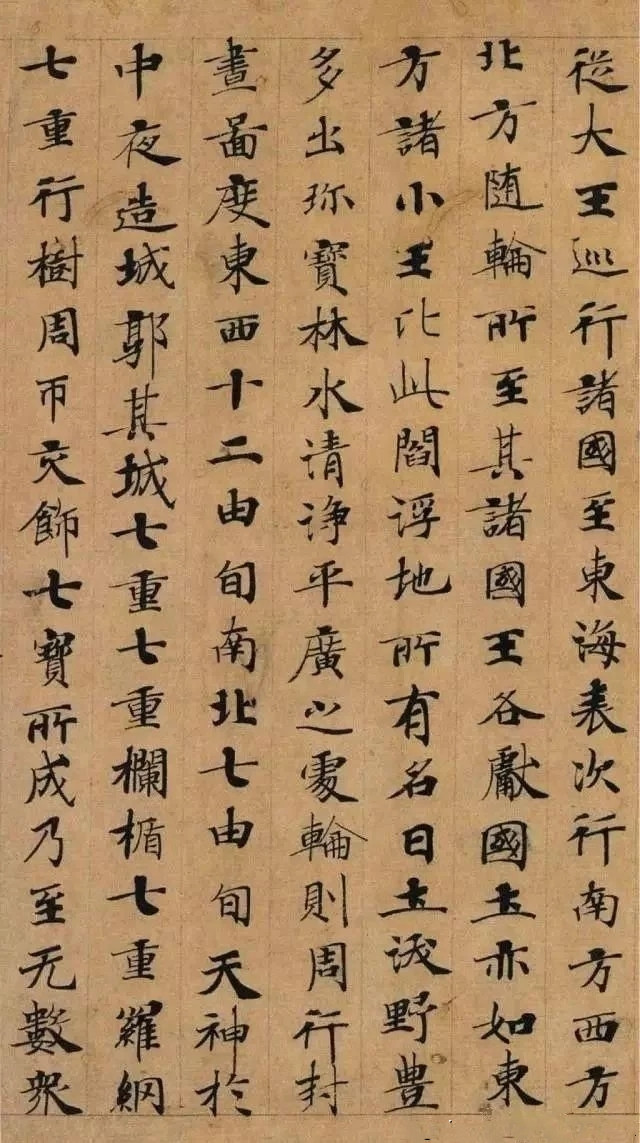 従大王巡行諸國至東海表次行南方西方
北方随輪所至其諸國王各獻國土亦如東
方諸小王比此閻浮地所有名曰土沃野豊
多出珎寳林水清淨平廣之處輪則周行封
畫啚度東西十二由旬南北七由旬天神於
中夜造城郭其城七重七重欄楯七重羅網
七重行樹周帀交飾七寳所成乃至无數衆